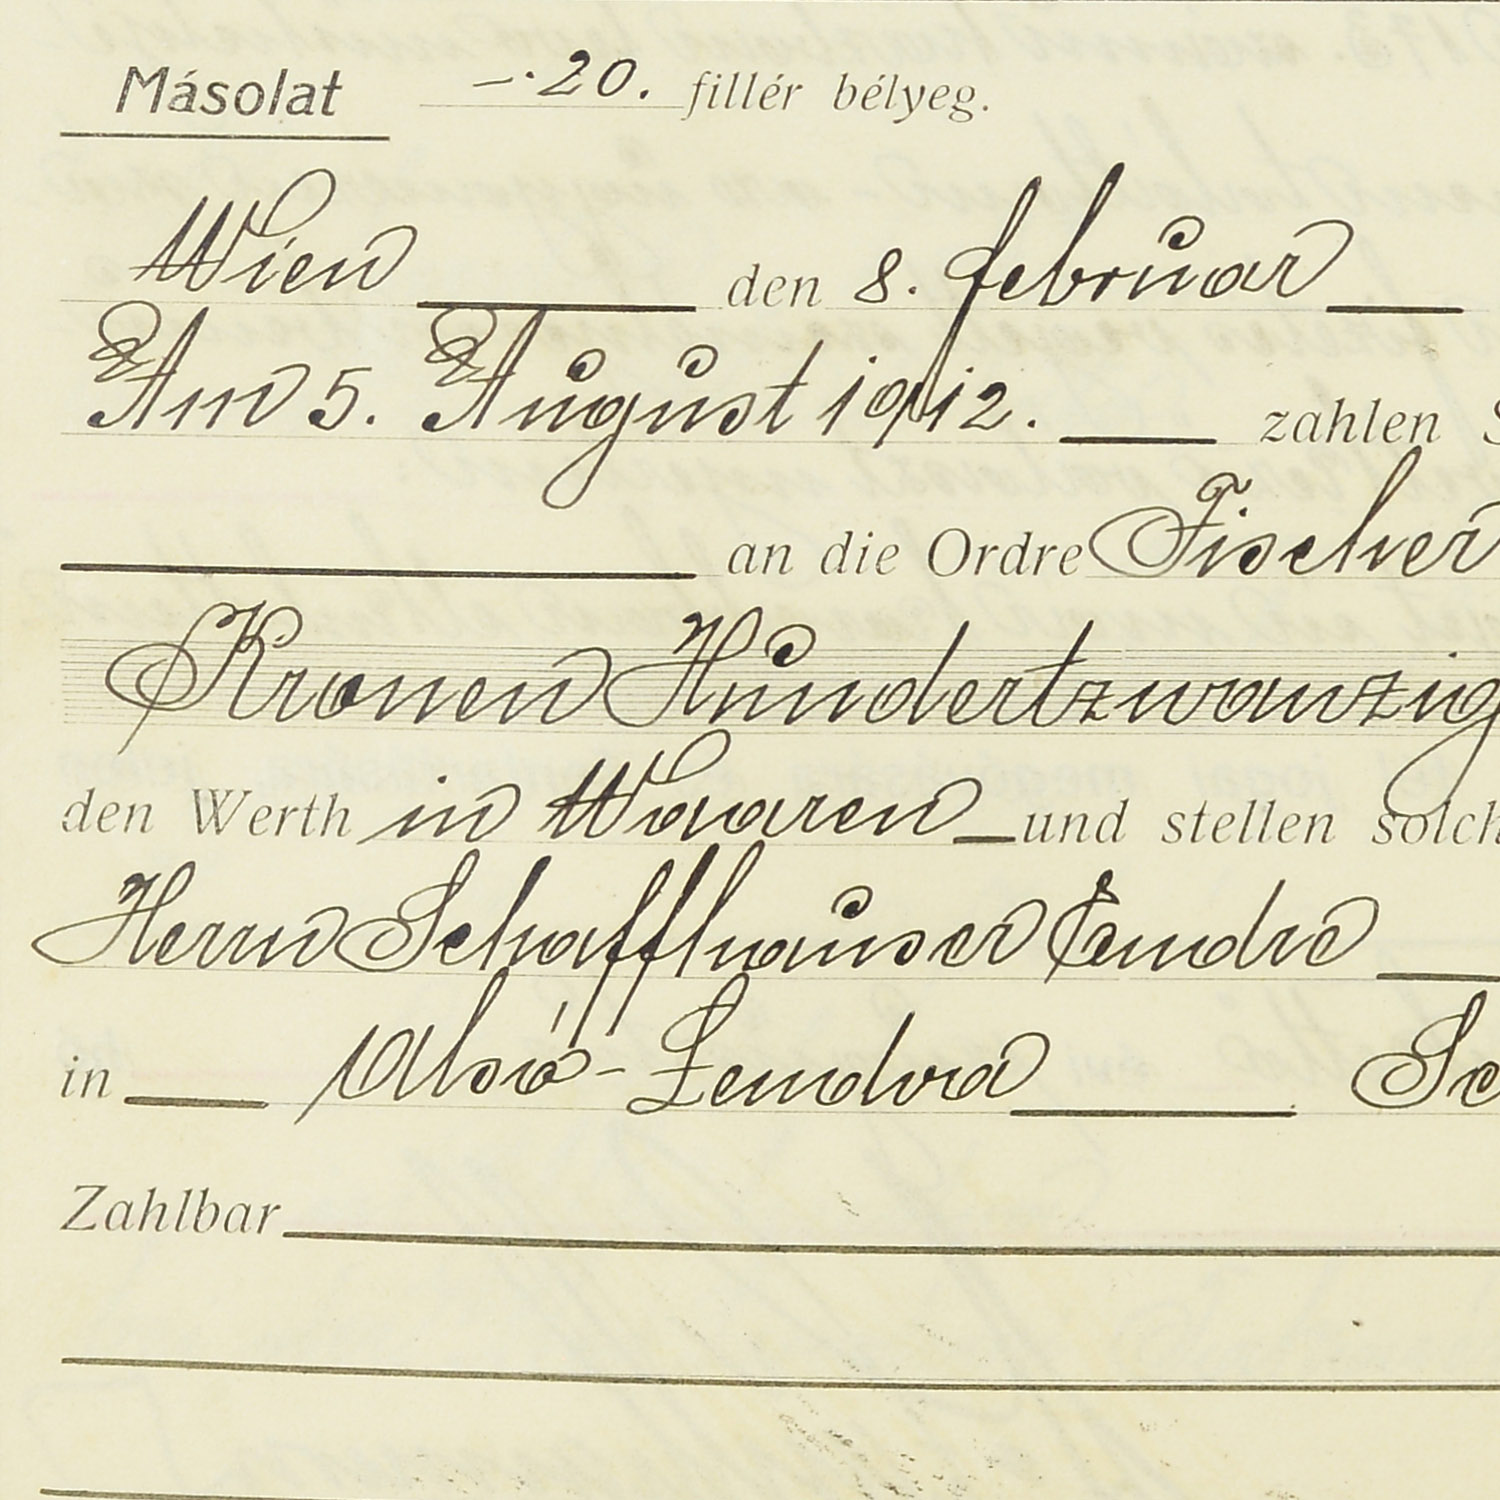 Másolat —·20. fillér bélyeg.
Wien den 8. februar
Am 5. August 1912. zahlen S
an die Ordre Fischer
Kronen Hundertzwanzig
den Werth in Waaren und stellen solch
Herrn Schaffhauser Endre
in Alsó-Lendva Sc
Zahlbar